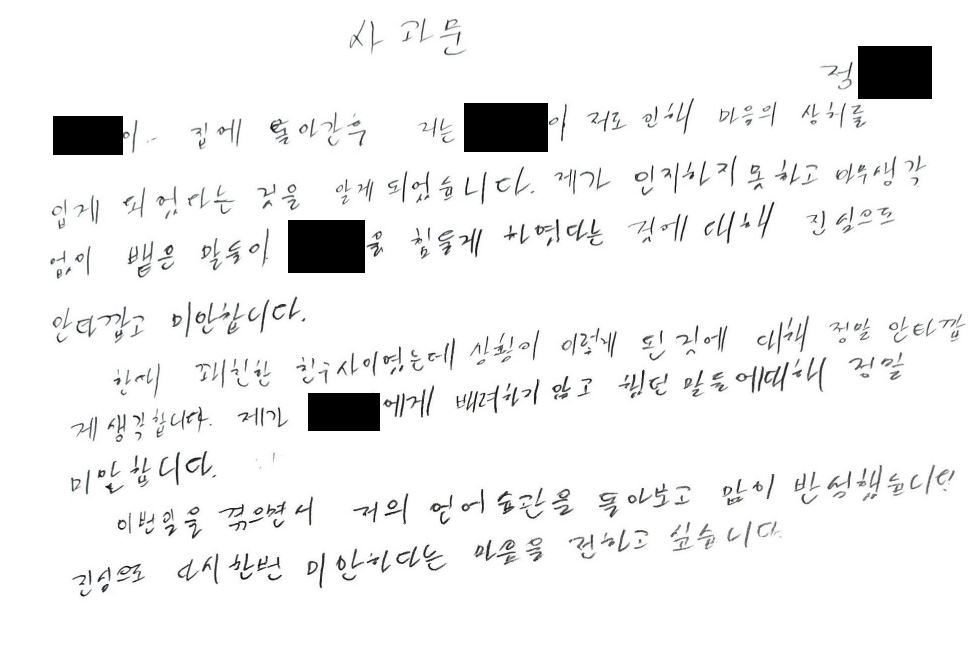 사과문
정
이.. 집에 돌아간후 저는 이 저로 인해 마음의 상처를
입게 되었다는 것을 알게 되었습니다. 제가 인지하지 못하고 아무생각
없이 뱉은 말들이 을 힘들게 하였다는 것에 대해 진심으로
안타깝고 미안합니다.
한때 꽤 친한 친구사이였는데 상황이 이렇게 된 것에 대해 정말 안타깝
게 생각합니다. 제가 에게 배려하지 않고 했던 말들에대해 정말
미안합니다.
이번일을 겪으면서 저의 언어습관을 돌아보고 많이 반성했습니다.
진심으로 다시한번 미안하다는 마음을 전하고 싶습니다.